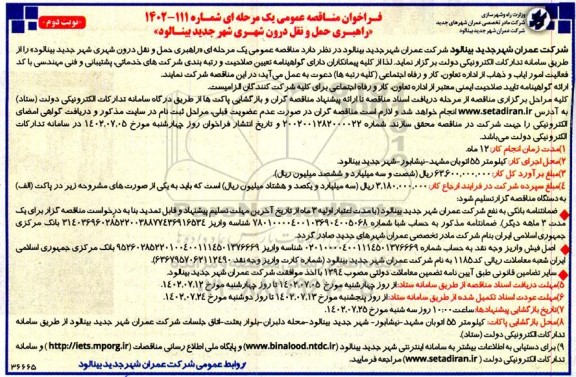 وزارت راه و شهرسازی
شرکت مادر تخصصی عمران شهرهای جدید
شرکت عمران شهر جدید بینالود
فراخوان مناقصه عمومی یک مرحله ای شماره ۱۱۱-۱۴۰۲
«راهبری حمل و نقل درون شهری شهر جدید بینالود»
-نوبت دوم-
شرکت عمران شهر جدید بینالود شرکت عمران شهر جدید بینالود در نظر دارد مناقصه عمومی یک مرحله ای «راهبری حمل و نقل درون شهری شهر جدید بینالود» را از
طریق سامانه تدارکات الکترونیکی دولت برگزار نماید. لذا از کلیه پیمانکاران دارای گواهینامه تعیین صلاحیت و رتبه بندی شرکت های خدماتی، پشتیبانی و فنی مهندسی با کد
فعالیت امور ایاب و ذهاب از اداره تعاون، کار و رفاه اجتماعی (کلیه رتبه ها) دعوت به عمل می آید؛ در این مناقصه شرکت نمایند.
ارائه گواهینامه تایید صلاحیت ایمنی معتبر از اداره تعاون، کار و رفاه اجتماعی برای کلیه شرکت کنندگان الزامیست.
کلیه مراحل برگزاری مناقصه از مرحله دریافت اسناد مناقصه تا ارائه پیشنهاد مناقصه گران و بازگشایی پاکت ها از طریق درگاه سامانه تدارکات الکترونیکی دولت (ستاد)
به آدرس www.setadiran.ir انجام خواهد شد و لازم است مناقصه گران در صورت عدم عضویت قبلی، مراحل ثبت نام در سایت مذکور و دریافت گواهی امضای
الکترونیکی را جهت شرکت در مناقصه محقق سازند. شماره ۲۰۰۲۰۰۱۲۸۲۰۰۰۰۲۲ و تاریخ انتشار فراخوان روز چهارشنبه مورخ ۱۴۰۲.۰۷.۰۵ در سامانه تدارکات
الکترونیکی دولت می باشد.
۱)مدت زمان انجام کار: ۱۲ ماه.
۲)محل اجرای کار: کیلومتر ۵۵ اتوبان مشهد-نیشابور-شهر جدید بینالود.
۳)مبلغ برآورد کل کار: ۶۳.۶۰۰.۰۰۰.۰۰۰ ریال (شصت و سه میلیارد و ششصد میلیون ریال).
۴)مبلغ سپرده شرکت در فرایند ارجاع کار: ۳.۱۸۰.۰۰۰.۰۰۰ ریال (سه میلیارد و یکصد و هشتاد میلیون ریال) است که باید به یکی از صورت های مشروحه زیر در پاکت (الف)
به دستگاه مناقصه گزار تسلیم شود:
ضمانتنامه بانکی به نفع شرکت عمران شهر جدید بینالود (با مدت اعتبار اولیه ۳ ماه از تاریخ آخرین مهلت تسلیم پیشنهاد و قابل تمدید بنا به درخواست مناقصه گزار برای یک
جمهوری اسلامی ایران بنام شرکت مادر تخصصی عمران شهرهای جدید صادر گردد.
سایر تضامین قانونی طبق آیین نامه تضمین معاملات دولتی مصوب ۱۳۹۴ با اخذ موافقت شرکت عمران شهر جدید بینالود.
۵)مهلت دریافت اسناد مناقصه از طریق سامانه ستاد:از روز چهارشنبه مورخ ۱۴۰۲.۰۷.۰۵ تا روز چهارشنبه مورخ ۱۴۰۲.۰۷.۱۲.
۶)مهلت عودت اسناد تکمیل شده از طریق سامانه ستاد: از روز پنجشنبه مورخ ۱۴۰۲.۰۷.۱۳ تا روز دوشنبه مورخ ۱۴۰۲.۰۷.۲۴.
۷)تاریخ بازگشایی پیشنهادها: ساعت ۱۰:۰۰ روز سه شنبه مورخ ۱۴۰۲.۰۷.۲۵.
۸)محل بازگشایی پاکات: کیلومتر ۵۵ اتوبان مشهد-نیشابور-شهر جدید بینالود-محله دلبران-بلوار بعثت-اتاق جلسات شرکت عمران شهر جدید بینالود از طریق سامانه
تدارکات الکترونیکی دولت (ستاد).
۹) برای دستیابی به اطلاعات بیشتر به سامانه اینترنتی شهر جدید بینالود (www.binalood.ntdc.ir) و پایگاه ملی اطلاع رسانی مناقصات (http://iets.mporg.ir) و سامانه
تدارکات الکترونیکی دولت (www.setadiran.ir) مراجعه فرمایید.
روابط عمومی شرکت عمران شهر جدید بینالود
۳۶۶۶۵